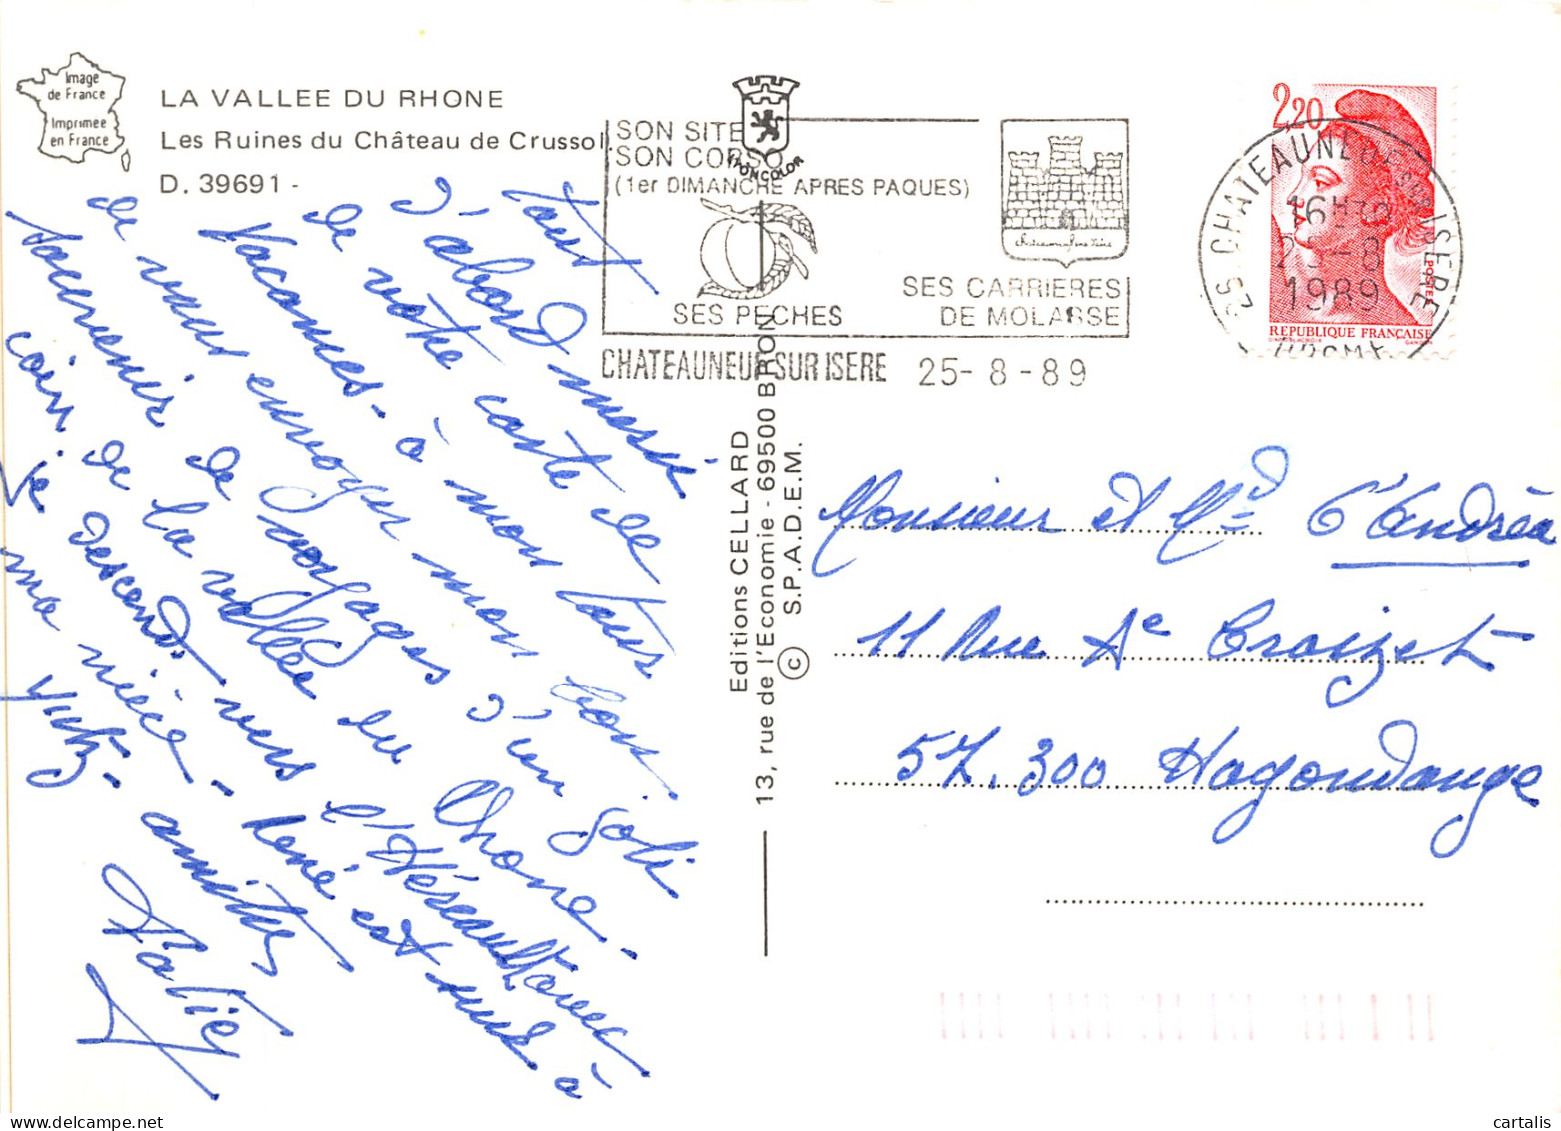 Image
de France
Imprimée
en France
LA VALLEE DU RHONE
Les Ruines du Château de Crussol.
D. 39691 -
SON SITE
SON CORSO
(1er DIMANCHE APRES PAQUES)
SES PECHES
SES CARRIERES
DE MOLASSE
CHATEAUNEUF SUR ISERE 25-8-89
2,20
REPUBLIQUE FRANÇAISE
POSTES
26 CHATEAUNEUF SUR ISERE
16H30
25-8
1989
DROME
Tout
d'abord merci
de votre carte de
Vacances - à mon tour
de vous envoyer mon bon
souvenir de voyages d'un joli
coin de la vallée du Rhone -
je descends vers l'Hérault avec
ma nièce - René est une à
Yutz - amitiés
Editions CELLARD
13, rue de l'Economie - 69500 BRON
S.P.A.D.E.M.
©
Monsieur et Me D'Andréa
11 Rue Ae Croizet
57.300 Hagondange
cartalis